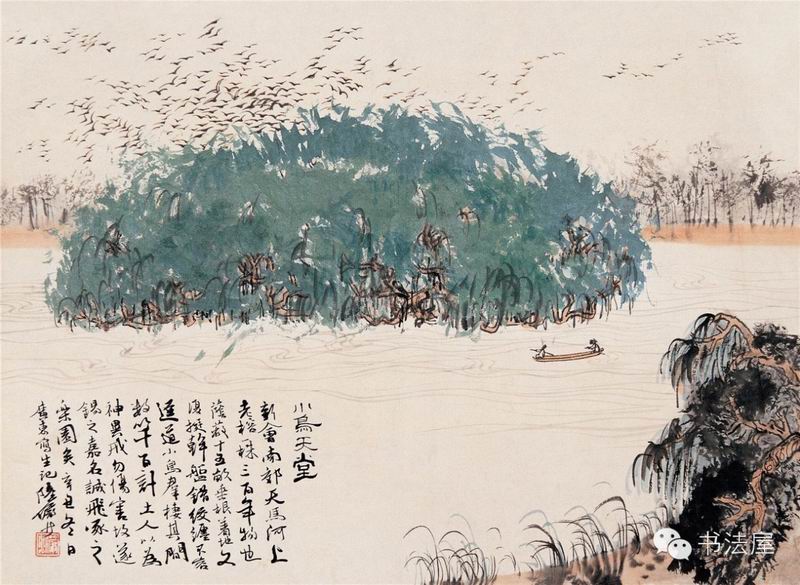 小鳥天堂
新會南郊天馬河上
老榕一株三百年物也
蔭蔽十五畝垂根著地又
復挺幹盤錯絞纏不容
逕道小鳥羣棲其間
數以千百計土人以為
神異戒勿傷害故遂
錫之嘉名誠飛啄之
樂園矣辛丑冬日
廣東寫生記陸儼少
书法屋